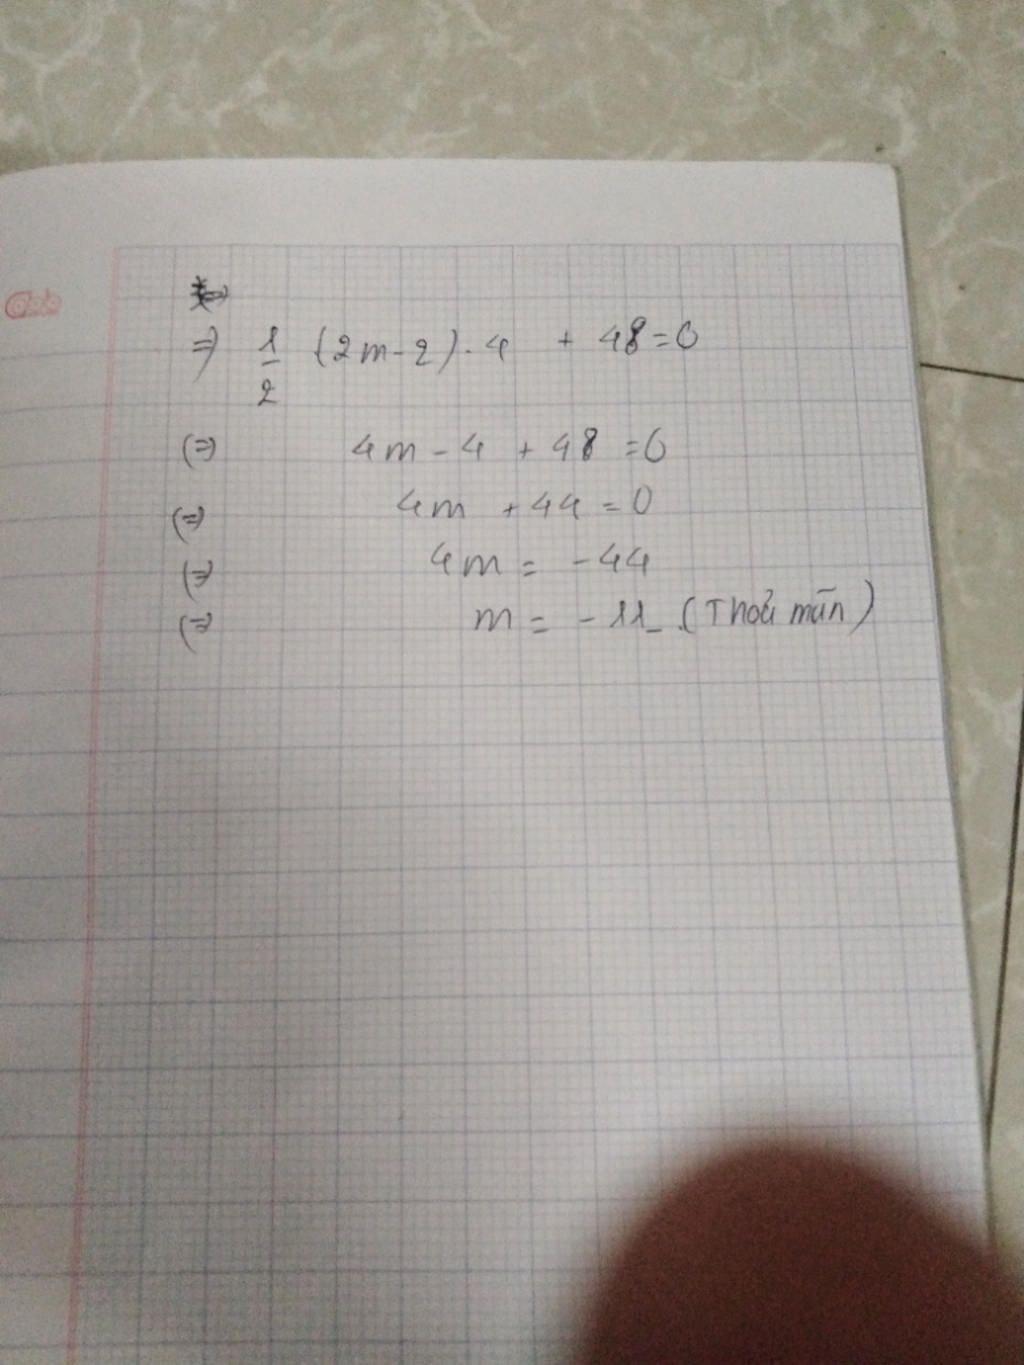 ⇒ 1/2 (2m-2).4 + 48=0
(⇒) 4m-4 + 48 =0
(⇒) 4m +44=0
(⇒) 4m = -44
(⇒) m = -11 (Thoả mãn)